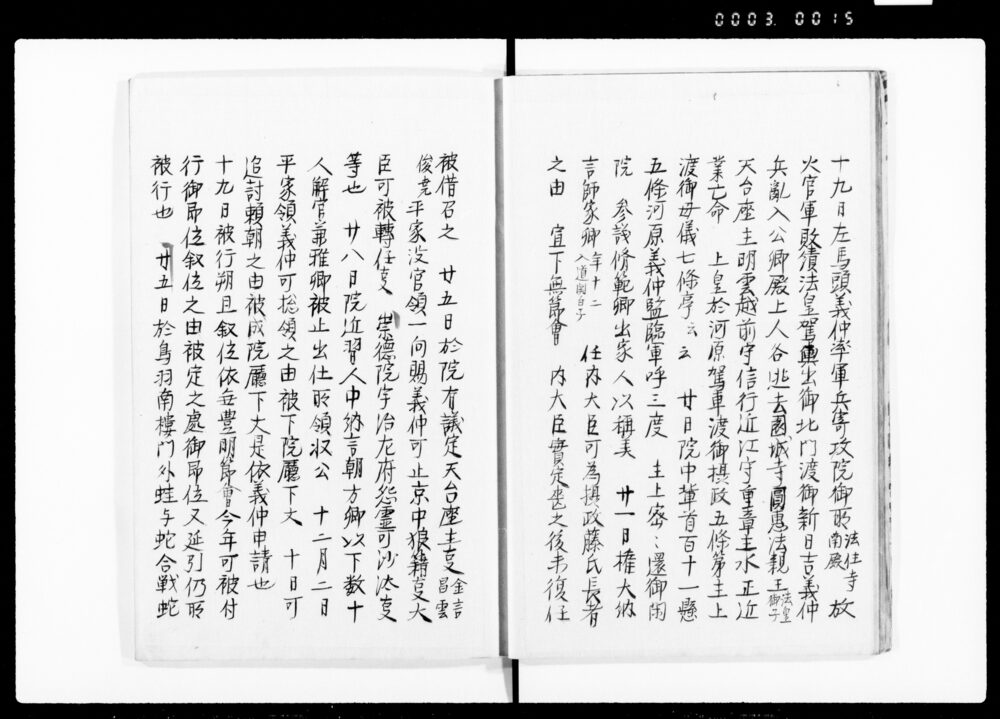 0003 0015
十九日左馬頭義仲率軍兵寄攻院御所法住寺南殿放
火官軍敗績法皇駕輿出御北門渡御新日吉義仲
兵亂入公卿殿上人各逃去園城寺圓惠法親王法皇御子
天台座主明雲越前守信行近江守重章主水正近
業亡命　上皇於河原駕車渡御摂政五條第主上
渡御母儀七條亭云云　廿日院中輩首百十一懸
五條河原義仲監臨軍呼三度　主上密々還御閑
院　参議脩範卿出家人以称美　廿一日権大納
言師家卿年十二入道関白子　任内大臣可為摂政藤氏長者
之由　宣下無節會　内大臣實定坐之後未復任
被借召之　廿五日於院有議定天台座主事金言昌雲
俊堯平家没官領一向賜義仲可止京中狼籍事大
臣可被轉任事　崇徳院宇治左府怨霊可沙汰事
等也　廿八日院近習人中納言朝方卿以下数十
人解官兼雅卿被止出仕所領収公　十二月二日
平家領義仲可惣領之由被下院廳下文　十日可
追討頼朝之由被成院廳下文是依義仲申請也
十九日被行朔旦叙位依無豊明節會今年可被付
行御即位叙位之由被定之處御即位又延引仍所
被行也　廿五日於鳥羽南樓門外蛙与蛇合戦蛇